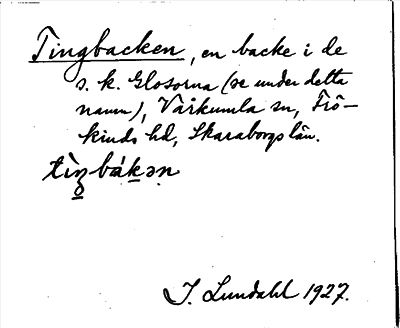 Tingbacken, en backe i de
s. k. Glosorna (se under detta
namn), Vårkumla sn, Frö-
kinds hd, Skaraborgs län.
tìŋbákən
I. Lundahl 1927.